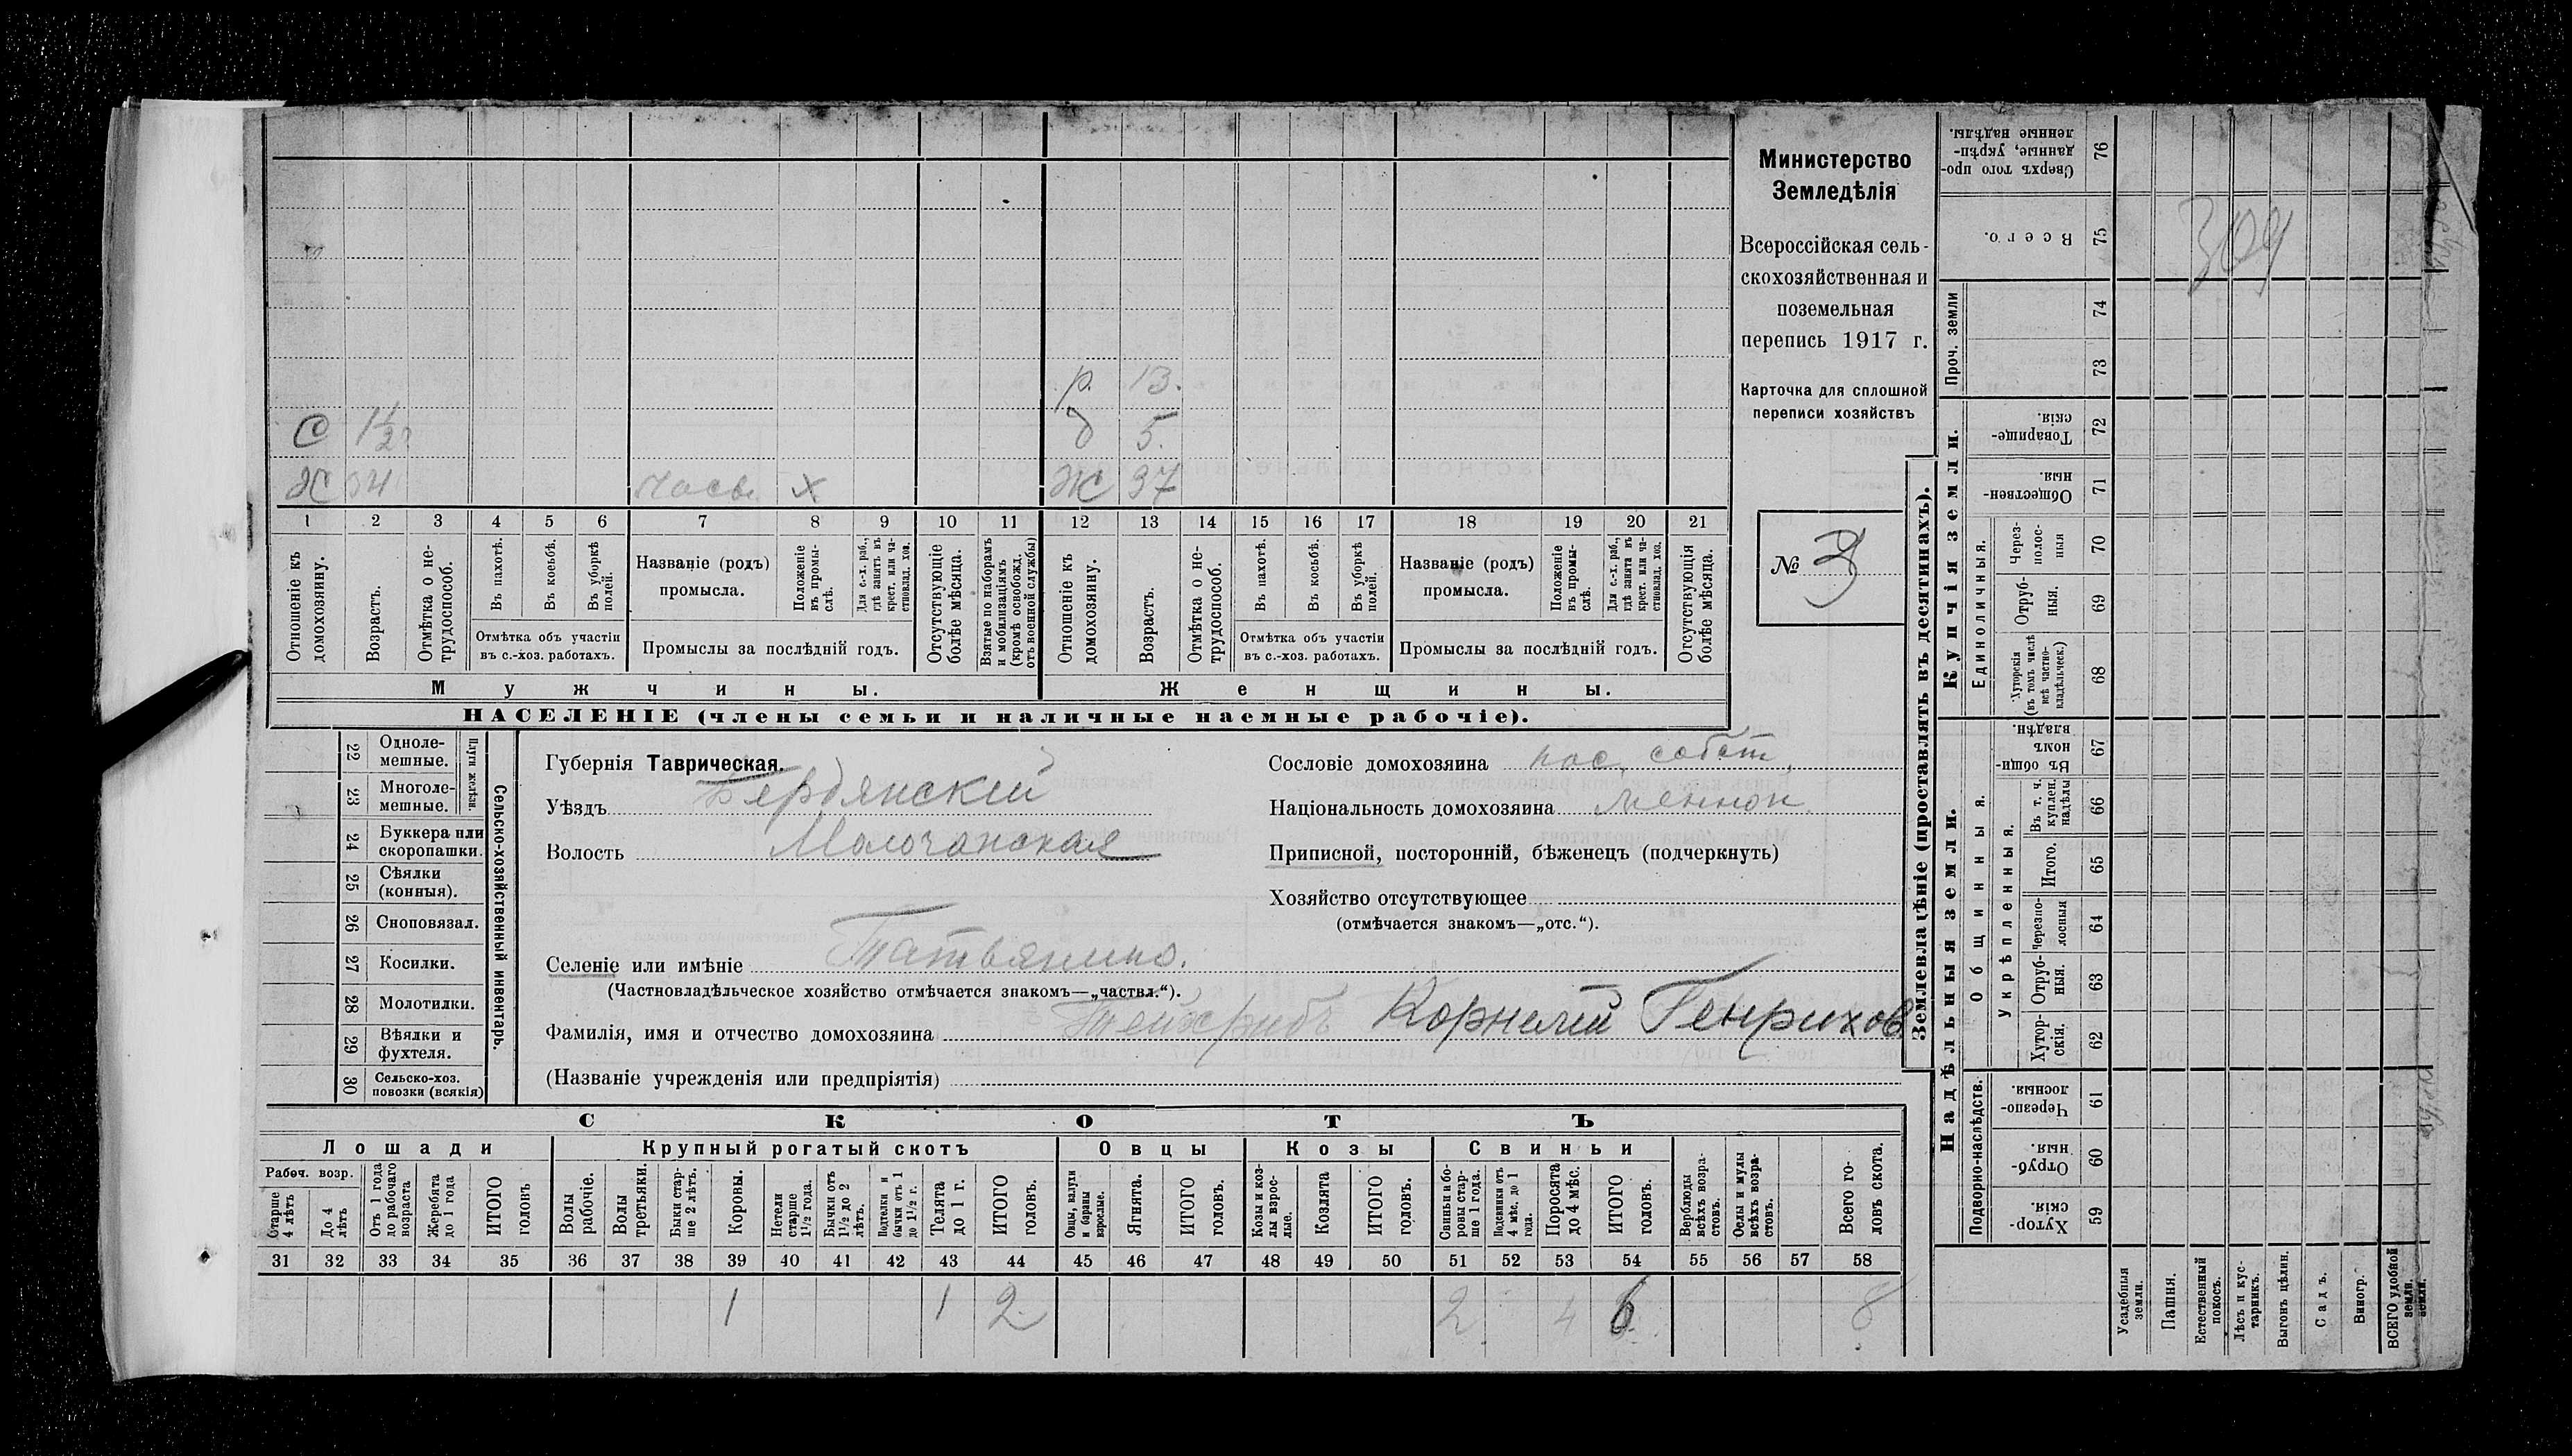 Министерство
Земледѣлія
Всероссійская сель-
скохозяйственная и
поземельная
перепись 1917 г.
Карточка для сплошной
переписи хозяйствъ
№ 3
р. 13.
С 1½ д 5.
Ж Ж 37
1 2 3 4 5 6 7 8 9 10 11 12 13 14 15 16 17 18 19 20 21
Отношеніе къ домохозяину.
Возрастъ.
Отмѣтка о не-трудоспособ.
Въ пахотѣ.
Въ косьбѣ.
Въ уборкѣ полей.
Отмѣтка объ участіи
въ с.-хоз. работахъ.
Названіе (родъ)
промысла.
Положеніе въ промы-слѣ.
Для с.-х. раб., гдѣ занятъ въ крест. или ча-стновлад. хоз.
Промыслы за послѣдній годъ.
Отсутствующіе болѣе мѣсяца.
Взятые по наборамъ и мобилизаціямъ (кромѣ освобожд. отъ военной службы)
Отношеніе къ домохозяину.
Возрастъ.
Отмѣтка о не-трудоспособ.
Въ пахотѣ.
Въ косьбѣ.
Въ уборкѣ полей.
Отмѣтка объ участіи
въ с.-хоз. работахъ.
Названіе (родъ)
промысла.
Положеніе въ промы-слѣ.
Для с.-х. раб., гдѣ занята въ крест. или ча-стновлад. хоз.
Промыслы за послѣдній годъ.
Отсутствующія болѣе мѣсяца.
Мужчины. Женщины.
НАСЕЛЕНІЕ (члены семьи и наличные наемные рабочіе).
22 Одноле-мешные.
23 Многоле-мешные.
Плуги желѣзн.
24 Буккера или скоропашки.
25 Сѣялки (конныя).
26 Сноповязал.
27 Косилки.
28 Молотилки.
29 Вѣялки и фухтеля.
30 Сельско-хоз. повозки (всякія)
Сельско-хозяйственный инвентарь.
Губернія Таврическая.
Уѣздъ Бердянскій
Волость Молочанская
Селеніе или имѣніе
(Частновладѣльческое хозяйство отмѣчается знакомъ—„частвл.“).
Фамилія, имя и отчество домохозяина Корнелій Генрихов
(Названіе учрежденія или предпріятія)
Сословіе домохозяина пос. собст.
Національность домохозяина меннон.
Приписной, посторонній, бѣженецъ (подчеркнуть)
Хозяйство отсутствующее
(отмѣчается знакомъ—„отс.“).
СКОТЪ
Лошади Крупный рогатый скотъ Овцы Козы Свиньи
Рабоч. возр.
Старше 4 лѣтъ
До 4 лѣтъ
Отъ 1 года до рабочаго возраста
Жеребята до 1 года
ИТОГО головъ
Волы рабочіе.
Волы третьяки.
Быки стар-ше 2 лѣтъ.
Коровы.
Нетели старше 1½ года.
Бычки отъ 1½ до 2 лѣтъ.
Подтелки и бычки отъ 1 до 1½ г.
Телята до 1 г.
ИТОГО головъ.
Овцы, валухи и бараны взрослые.
Ягнята.
ИТОГО головъ.
Козы и коз-лы взрос-лые.
Козлята
ИТОГО головъ.
Свиньи и бо-ровы стар-ше 1 года.
Подсвинки отъ 4 мѣс. до 1 года.
Поросята до 4 мѣс.
ИТОГО головъ.
Верблюды всѣхъ возра-стовъ.
Ослы и мулы всѣхъ возра-стовъ.
Всего го-ловъ скота.
31 32 33 34 35 36 37 38 39 40 41 42 43 44 45 46 47 48 49 50 51 52 53 54 55 56 57 58
1 1 2 2 4 6 8
Землевладѣніе (проставлять въ десятинахъ).
Надѣльныя земли. Купчія земли.
Проч. земли
Подворно-наслѣдств.
Общинныя.
Укрѣпленныя.
Единоличныя.
76 Сверхъ того про-данные, укрѣп-ленные надѣлы.
75 Всего.
74
73
72 Товарище-скія.
71 Обществен-ныя.
70 Через-полос-ныя
69 Отруб-ныя.
68 Хуторскія (въ томъ числѣ всѣ частно-владѣльческ.)
67 Въ общи-номъ владѣн.
66 Въ т. ч. куплен. надѣлы
65 Итого.
64 Черезпо-лосныя
63 Отруб-ныя.
62 Хутор-скія.
61 Черезпо-лосныя.
60 Отруб-ныя.
59 Хутор-скія.
Усадебныя земли.
Пашня.
Естественный покосъ.
Лѣсъ и кус-тарникъ.
Выгонъ цѣлин.
Садъ.
Виногр.
ВСЕГО удобной земли.